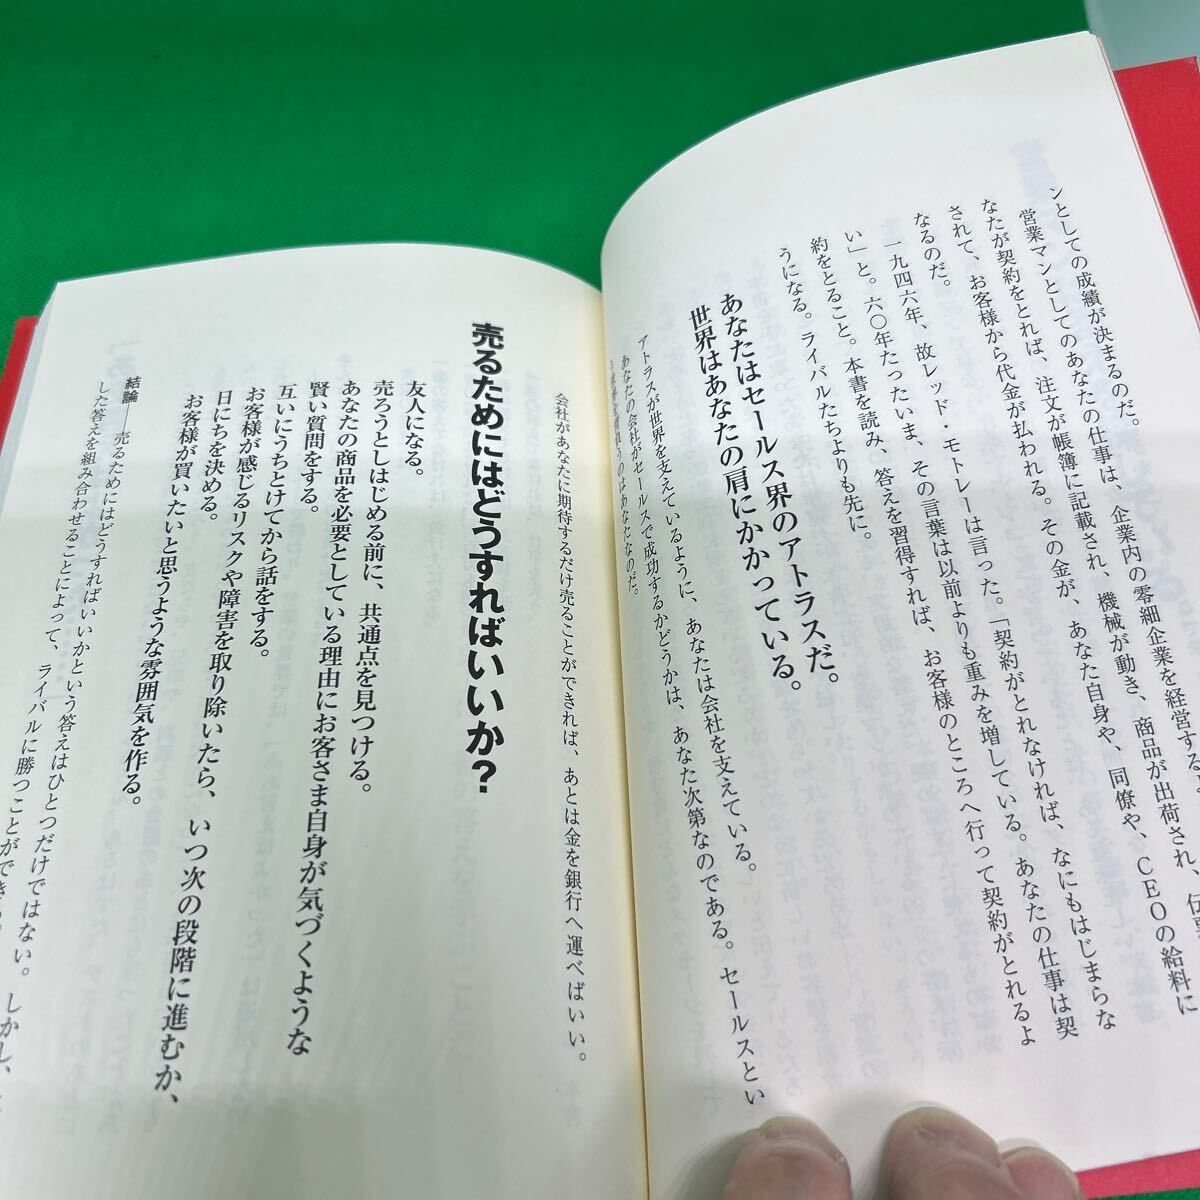 ンとしての成績が決まるのだ。
営業マンとしてのあなたの仕事は、企業内の零細企業を経営する
なたが契約をとれば、注文が帳簿に記載され、機械が動き、商品が出荷され、伝票
されて、お客様から代金が払われる。その金が、あなた自身や、同僚や、CEOの給料に
なるのだ。
一九四六年、故レッド・モトレーは言った。「契約がとれなければ、なにもはじまらな
い」と。六〇年たったいま、その言葉は以前よりも重みを増している。あなたの仕事は契
約をとること。本書を読み、答えを習得すれば、お客様のところへ行って契約がとれるよ
うになる。ライバルたちよりも先に。
あなたはセールス界のアトラスだ。
世界はあなたの肩にかかっている。
アトラスが世界を支えているように、あなたは会社を支えている。
あなたの会社がセールスで成功するかどうかは、あなた次第なのである。セールスとい
うのはあなたなのだ。
会社があなたに期待するだけ売ることができれば、あとは金を銀行へ運べばいい。
売るためにはどうすればいいか?
友人になる。
売ろうとしはじめる前に、共通点を見つける。
あなたの商品を必要としている理由にお客さま自身が気づくような
賢い質問をする。
互いにうちとけてから話をする。
お客様が感じるリスクや障害を取り除いたら、いつ次の段階に進むか、
日にちを決める。
お客様が買いたいと思うような雰囲気を作る。
結論――売るためにはどうすればいいかという答えはひとつだけではない。しかし、
した答えを組み合わせることによって、ライバルに勝つことができ